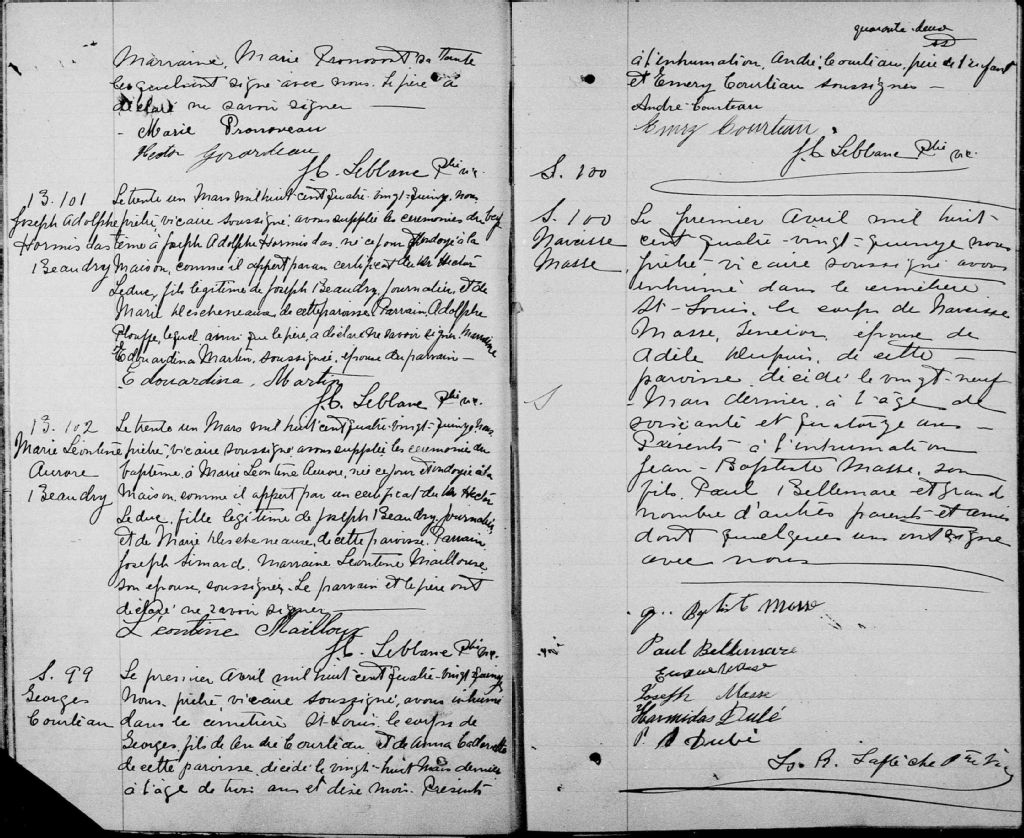 Marraine, Marie Pronovost sa tante
lesquels ont signé avec nous. Le père a
déclaré ne savoir signer
- Marie Pronoveau
Hector Girardeau
J.C. Leblanc Ptre vic.
B. 101
Joseph Adolphe
Hormisdas
Beaudry
Le trente un Mars mil huit cent quatre-vingt-quinze, nous
prêtre, vicaire soussigné, avons suppléé les cérémonies du bap
tême à Joseph Adolphe Hormisdas, né ce jour et ondoyé à la
Maison, comme il appert par un certificat du Dr Hector
Leduc, fils légitime de Joseph Beaudry, journalier, et de
Marie Descheneaux, de cette paroisse. Parrain, Adolphe
Plouffe, lequel ainsi que le père, a déclaré ne savoir signer. Marraine
Edouardina Martin, soussignée, épouse du parrain -
Edouardina Martin
J.C. Leblanc Ptre vic.
B. 102
Marie Léontine
Aurore
Beaudry
Le trente un Mars mil huit cent quatre-vingt-quinze, nous
prêtre, vicaire soussigné, avons suppléé les cérémonies du
baptême à Marie Léontine Aurore, née ce jour et ondoyée à la
Maison, comme il appert par un certificat du Dr Hector
Leduc, fille légitime de Joseph Beaudry, journalier,
et de Marie Descheneaux, de cette paroisse. Parrain,
Joseph Simard, Marraine Léontine Mailloux,
son épouse, soussignée. Le parrain et le père ont
déclaré ne savoir signer
Léontine Mailloux
J.C. Leblanc Ptre vic.
S. 99
Georges
Courteau
Le premier Avril mil huit cent quatre-vingt quinze
Nous, prêtre, vicaire soussigné, avons inhumé
dans le cimetière St Louis, le corps de
Georges, fils de André Courteau et de Anna
de cette paroisse, décédé le vingt-huit Mars dernier
à l'âge de trois ans et dix mois. Présents
quarante-deux
à l'inhumation, André Courteau, père de l'enfant
et Emery Courteau soussignés -
André Courteau
Emery Courteau
J.C. Leblanc Ptre vic.
S. 100
S. 100
Narcisse
Masse
Le premier Avril mil huit-
cent quatre-vingt-quinze nous
prêtre-vicaire soussigné avons
inhumé dans le cimetière
St-Louis, le corps de Narcisse
Masse, époux de
Adèle Dupuis, de cette
paroisse, décédé le vingt-neuf
Mars dernier, à l'âge de
soixante et quatorze ans -
Présents à l'inhumation
Jean-Baptiste Masse, son
fils, Paul Bellemare et grand
nombre d'autres parents et amis
dont quelques uns ont signé
avec nous
Baptist Masse
Paul Bellemare
Joseph Masse
Hormidas Dubé
P. A Dubé
Ls. R. Laflèche Ptre Vic